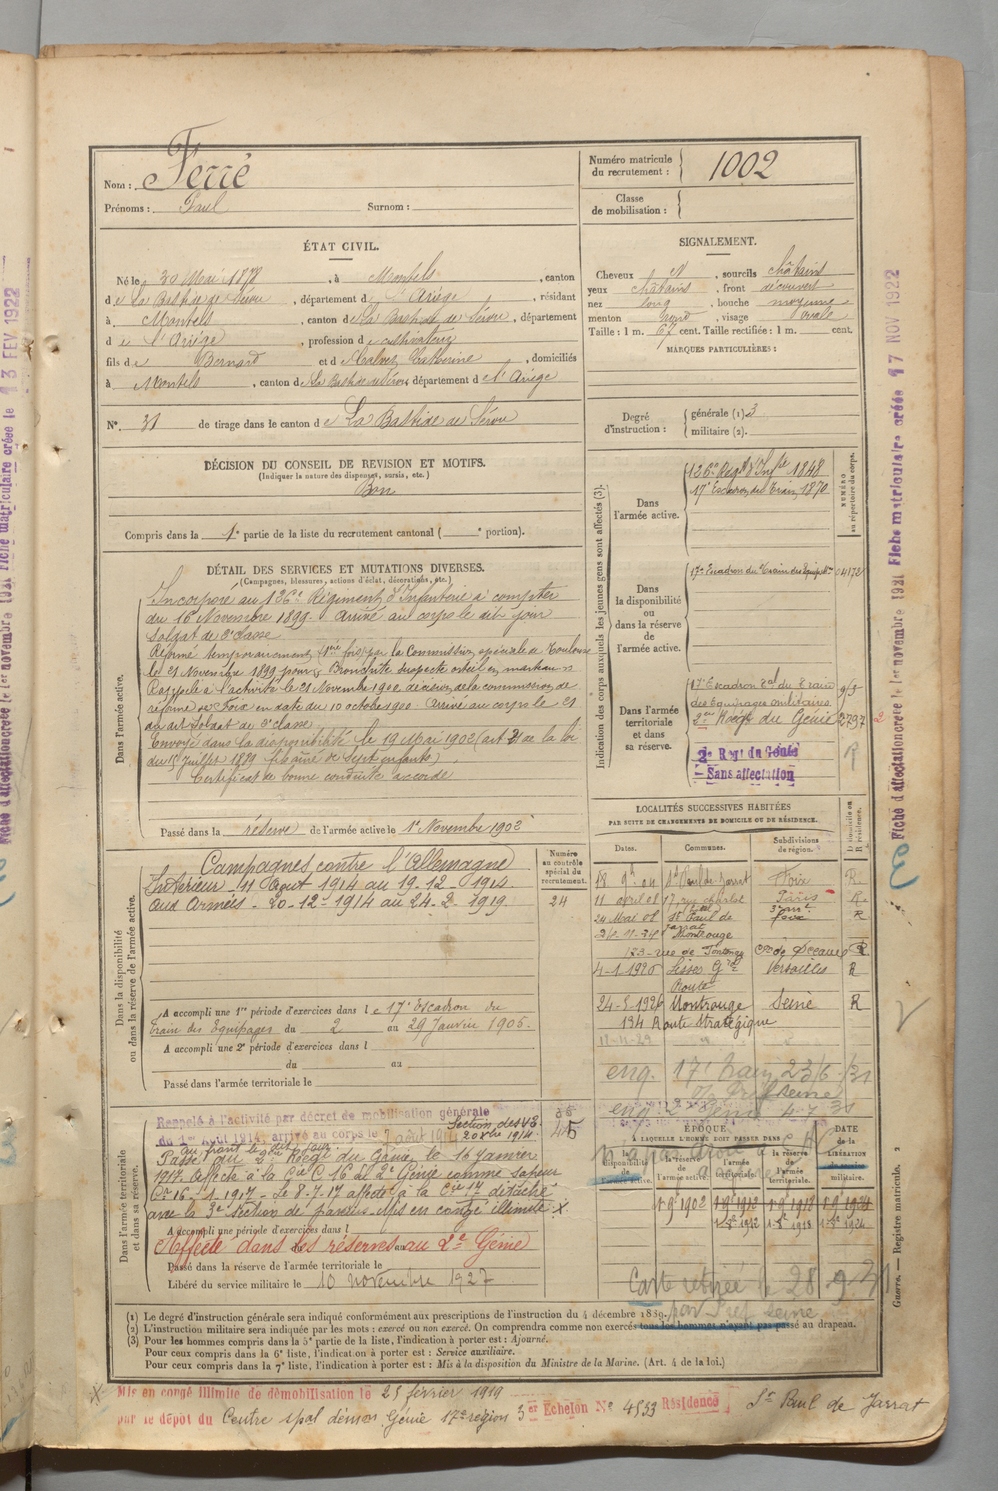 Nom : Ferré
Prénoms : Paul Surnom :
Numéro matricule du recrutement : 1002
Classe de mobilisation :
ÉTAT CIVIL.
Né le 30 Mai 1878, à Montels, canton
de La Bastide de Sérou, département de l'Ariège, résidant
à Montels, canton de La Bastide de Sérou, département
de l'Ariège, profession de cultivateur
fils de Bernard et de Calvet Catherine, domiciliés
à Montels, canton de La Bastide de Sérou département de l'Ariège
N° 31 de tirage dans le canton de La Bastide de Sérou
SIGNALEMENT.
Cheveux N, sourcils châtains
yeux châtains, front découvert
nez long, bouche moyenne
menton rond, visage ovale
Taille : 1 m. 67 cent. Taille rectifiée : 1 m. cent.
MARQUES PARTICULIÈRES :
Degré d'instruction : générale (1) 3
militaire (2).
DÉCISION DU CONSEIL DE REVISION ET MOTIFS.
(Indiquer la nature des dispenses, sursis, etc.)
Bon
Compris dans la 1e partie de la liste du recrutement cantonal ( e portion).
DÉTAIL DES SERVICES ET MUTATIONS DIVERSES.
(Campagnes, blessures, actions d'éclat, décorations, etc.)
Dans l'armée active.
Incorporé au 126e Régiment d'Infanterie à compter
du 16 Novembre 1899. Arrivé au corps le dit jour
Soldat de 2e classe
Réformé temporairement (1re fois) par la Commission spéciale de Toulouse
le 21 Novembre 1899 pour Bronchite suspecte orteil en marteau
Rappelé à l'activité le 21 Novembre 1900 décision de la commission de
réforme de Foix en date du 10 octobre 1900 Arrivé au corps le 21
du dit Soldat de 2e classe
Envoyé dans la disponibilité le 19 Mai 1902 (art 21 de la loi
du 15 juillet 1889 fils aîné de sept enfants)
Certificat de bonne conduite accordé
Passé dans la réserve de l'armée active le 1er Novembre 1902
Indication des corps auxquels les jeunes gens sont affectés (3).
NUMÉRO au répertoire du corps.
Dans l'armée active.
126e Régt d'Infie 1848
17e Escadron du Train 1870
Dans la disponibilité ou dans la réserve de l'armée active.
17e Escadron du Train des Equipages 04172
Dans l'armée territoriale et dans sa réserve.
17e Escadron du Train
des Equipages militaires
2me Régt du Génie 2797
2e Régt du Génie R
Sans affectation
LOCALITÉS SUCCESSIVES HABITÉES
PAR SUITE DE CHANGEMENTS DE DOMICILE OU DE RÉSIDENCE.
Dates. Communes. Subdivisions de région. D domicile ou R résidence.
St Paul de Jarrat Foix R.
11 avril 08 17, rue Paris R.
24 Mai 08 St Paul de Jarrat Foix R
Montrouge
133 rue de con de Sceaux R
4-1-1926 Lisses Gde Route Versailles R
24-5-1926 Montrouge Seine R
134 Route Stratégique
Dans la disponibilité ou dans la réserve de l'armée active.
Campagnes contre l'Allemagne
Intérieur 11 Août 1914 au 19-12-1914
aux Armées - 20-12-1914 au 24-2-1919
Numéro au contrôle spécial du recrutement.
24
A accompli une 1re période d'exercices dans le 17e Escadron du
Train des Equipages du 2 au 29 Janvier 1905.
A accompli une 2e période d'exercices dans l
du au
Passé dans l'armée territoriale le
Dans l'armée territoriale et dans sa réserve.
Rappelé à l'activité par décret de mobilisation générale
du 1er Août 1914, arrivé au corps le 7 août 1914
Passé au 2e Régt du Génie le 16 Janvier
1917. Affecté à la Cie C 16 du 2e Génie comme sapeur
Le 8-7-17 affecté à la Cie 17 détaché
avec la 3e Section de Mis en congé illimité X
A accompli une période d'exercices dans l
Affecté dans les réserves au 2e Génie
Passé dans la réserve de l'armée territoriale le
Libéré du service militaire le 10 novembre 1927
45
eng. 17e Train 23/6/31
Pref Seine
eng. 2e Génie 4-7-31
ÉPOQUE À LAQUELLE L'HOMME DOIT PASSER DANS
la disponibilité de l'armée active. la réserve de l'armée active. l'armée territoriale. la réserve de l'armée territoriale.
DATE de la LIBÉRATION du service militaire.
1 9 1902 1 9 1912 1 9 1918 1 9 1924
Carte retirée le 28 9 31
par Pref Seine
(1) Le degré d'instruction générale sera indiqué conformément aux prescriptions de l'instruction du 4 décembre 1889.
(2) L'instruction militaire sera indiquée par les mots : exercé ou non exercé. On comprendra comme non exercés tous les hommes n'ayant pas passé au drapeau.
(3) Pour les hommes compris dans la 5e partie de la liste, l'indication à porter est : Ajourné.
Pour ceux compris dans la 6e liste, l'indication à porter est : Service auxiliaire.
Pour ceux compris dans la 7e liste, l'indication à porter est : Mis à la disposition du Ministre de la Marine. (Art. 4 de la loi.)
Mis en congé illimité de démobilisation le 25 février 1919
par le dépôt du Centre spal démon Génie 17e région 3er Echelon N° 4533 Résidence St Paul de Jarrat
Guerre. — Registre matricule. 2
Fiche d'affectation créée le 1er novembre 1921 Fiche matriculaire créée le 13 FEV 1922
Fiche d'affectation créée le 1er novembre 1921 Fiche matriculaire créée 17 NOV 1922